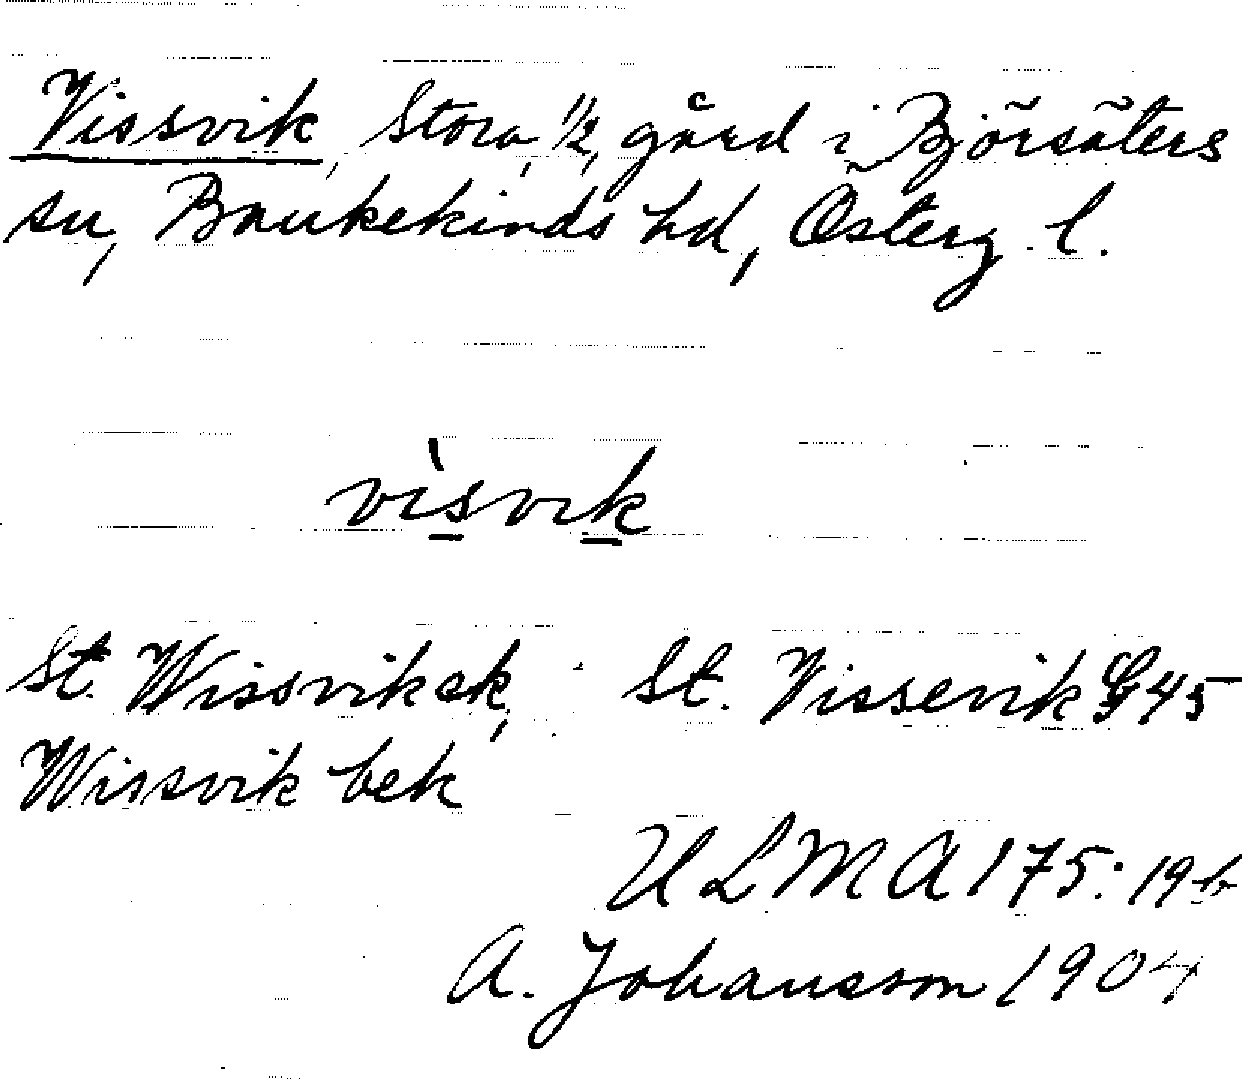 Vissvik, Stora, 1/2, gård i Björsäters
sn, Bankekinds hd, Österg. l.
vìsvik
St. Wissvik ek, St. Vissevik G45
Wissvik bek
ULMA 175:19b
A. Johansson 1904